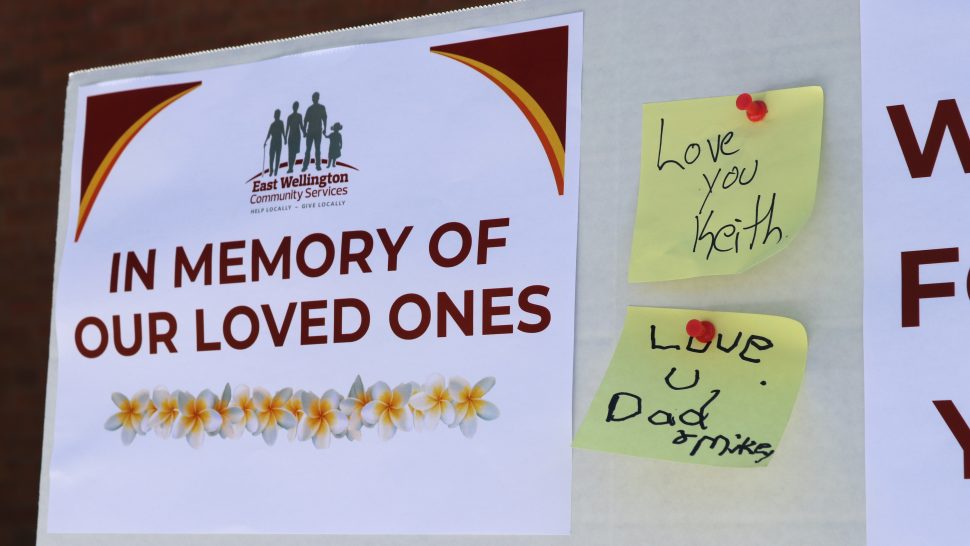 East Wellington
Community Services
HELP LOCALLY - GIVE LOCALLY
IN MEMORY OF
OUR LOVED ONES
Love
you
Keith.
Love
U,
Dad
& Mikey
W
FO
Y